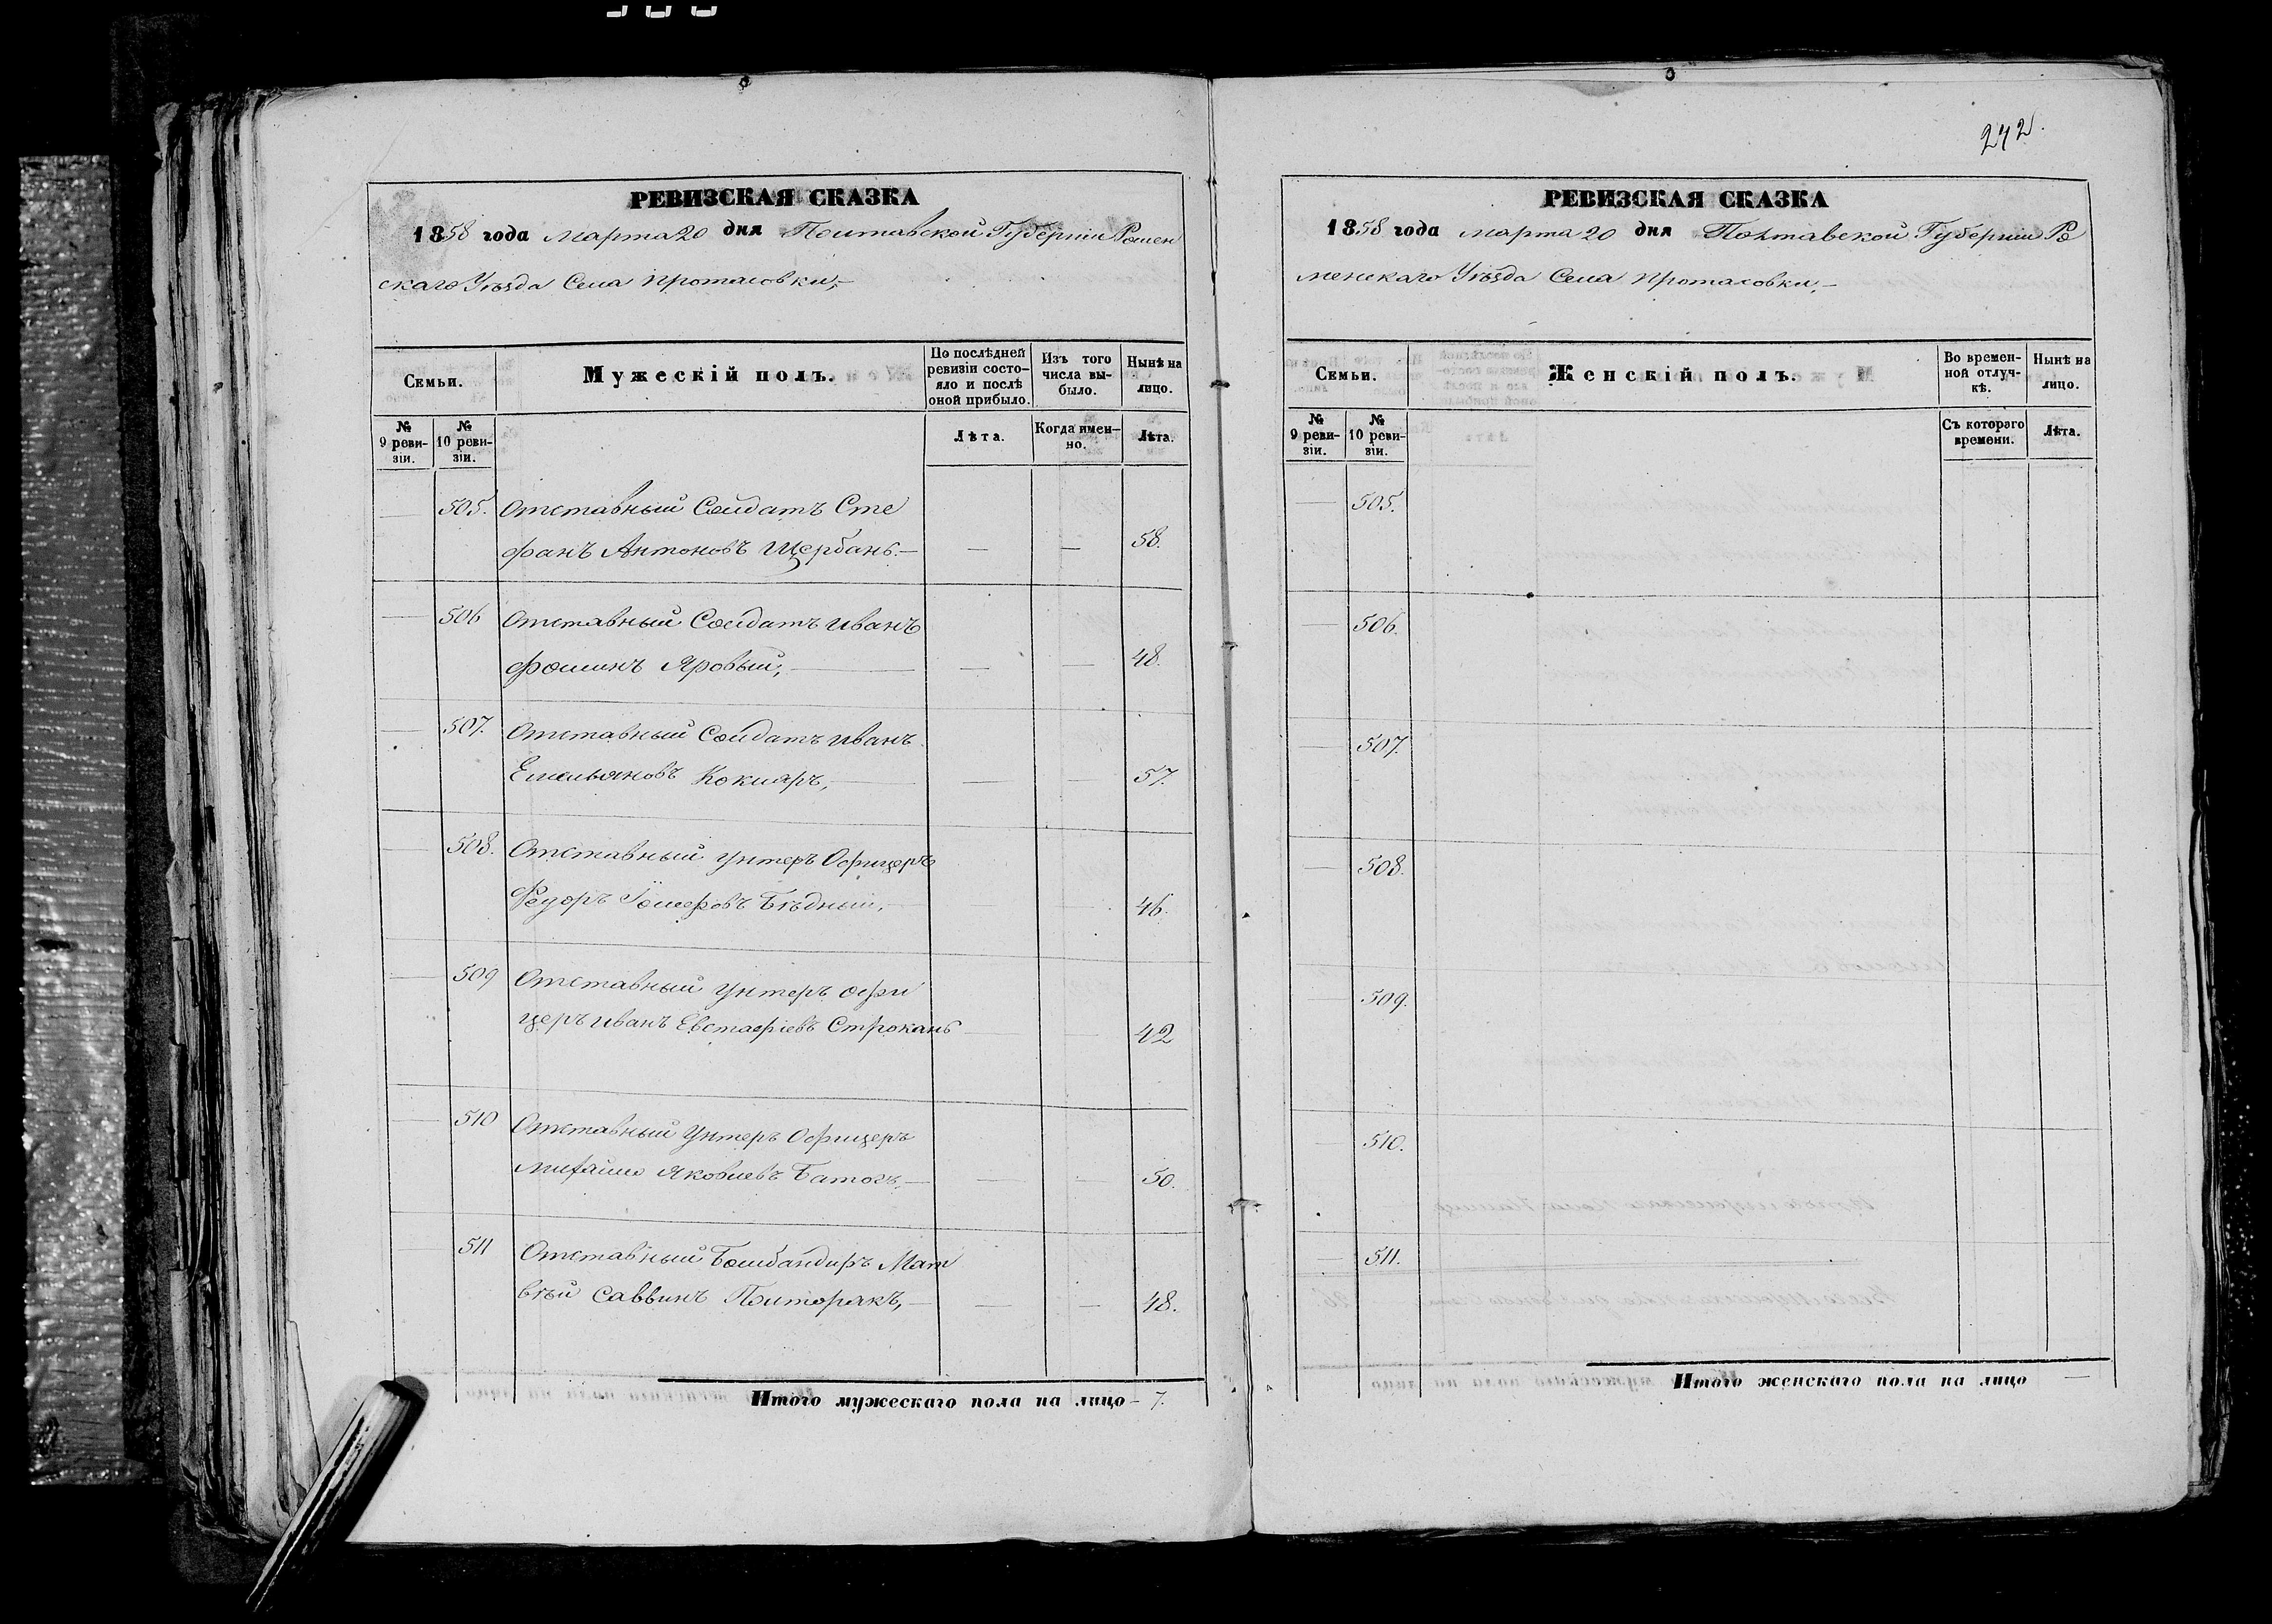 РЕВИЗСКАЯ СКАЗКА
1858 года Марта 20 дня Полтавской Губерніи Ромен
скаго Уѣзда Села Протасовки,
Семьи.
Мужескій полъ.
По послѣдней ревизіи состояло и послѣ оной прибыло.
Изъ того числа выбыло.
Нынѣ на лицо.
№ 9 ревизіи.
№ 10 ревизіи.
Лѣта.
Когда именно.
Лѣта.
505. Отставный Солдатъ Сте
фанъ Антоновъ Щербань. — — — 58.
506 Отставный Солдатъ Иванъ
Фоминъ Яровый, — — — 48.
507. Отставный Солдатъ Иванъ
Емельяновъ Кокляръ, — — — 57.
508. Отставный Унтеръ Офицеръ
Федоръ Бѣдный, — 46.
509 Отставный Унтеръ Офи
церъ Иванъ Евстафіевъ Строкань — — 42
510 Отставный Унтеръ Офицеръ
Михайло Яковлевъ Батогъ, — — — 50.
511 Отставный Бомбандиръ Мат
вѣй Саввинъ Полторакъ, — — — 48.
Итого мужескаго пола на лицо — 7.
242.
РЕВИЗСКАЯ СКАЗКА
1858 года Марта 20 дня Полтавской Губерніи Ро
менскаго Уѣзда Села Протасовки. —
Семьи.
Женскій полъ.
Во временной отлучкѣ.
Нынѣ на лицо.
№ 9 ревизіи.
№ 10 ревизіи.
Съ котораго времени.
Лѣта.
505.
506.
507.
508.
509.
510.
511.
Итого женскаго пола на лицо —